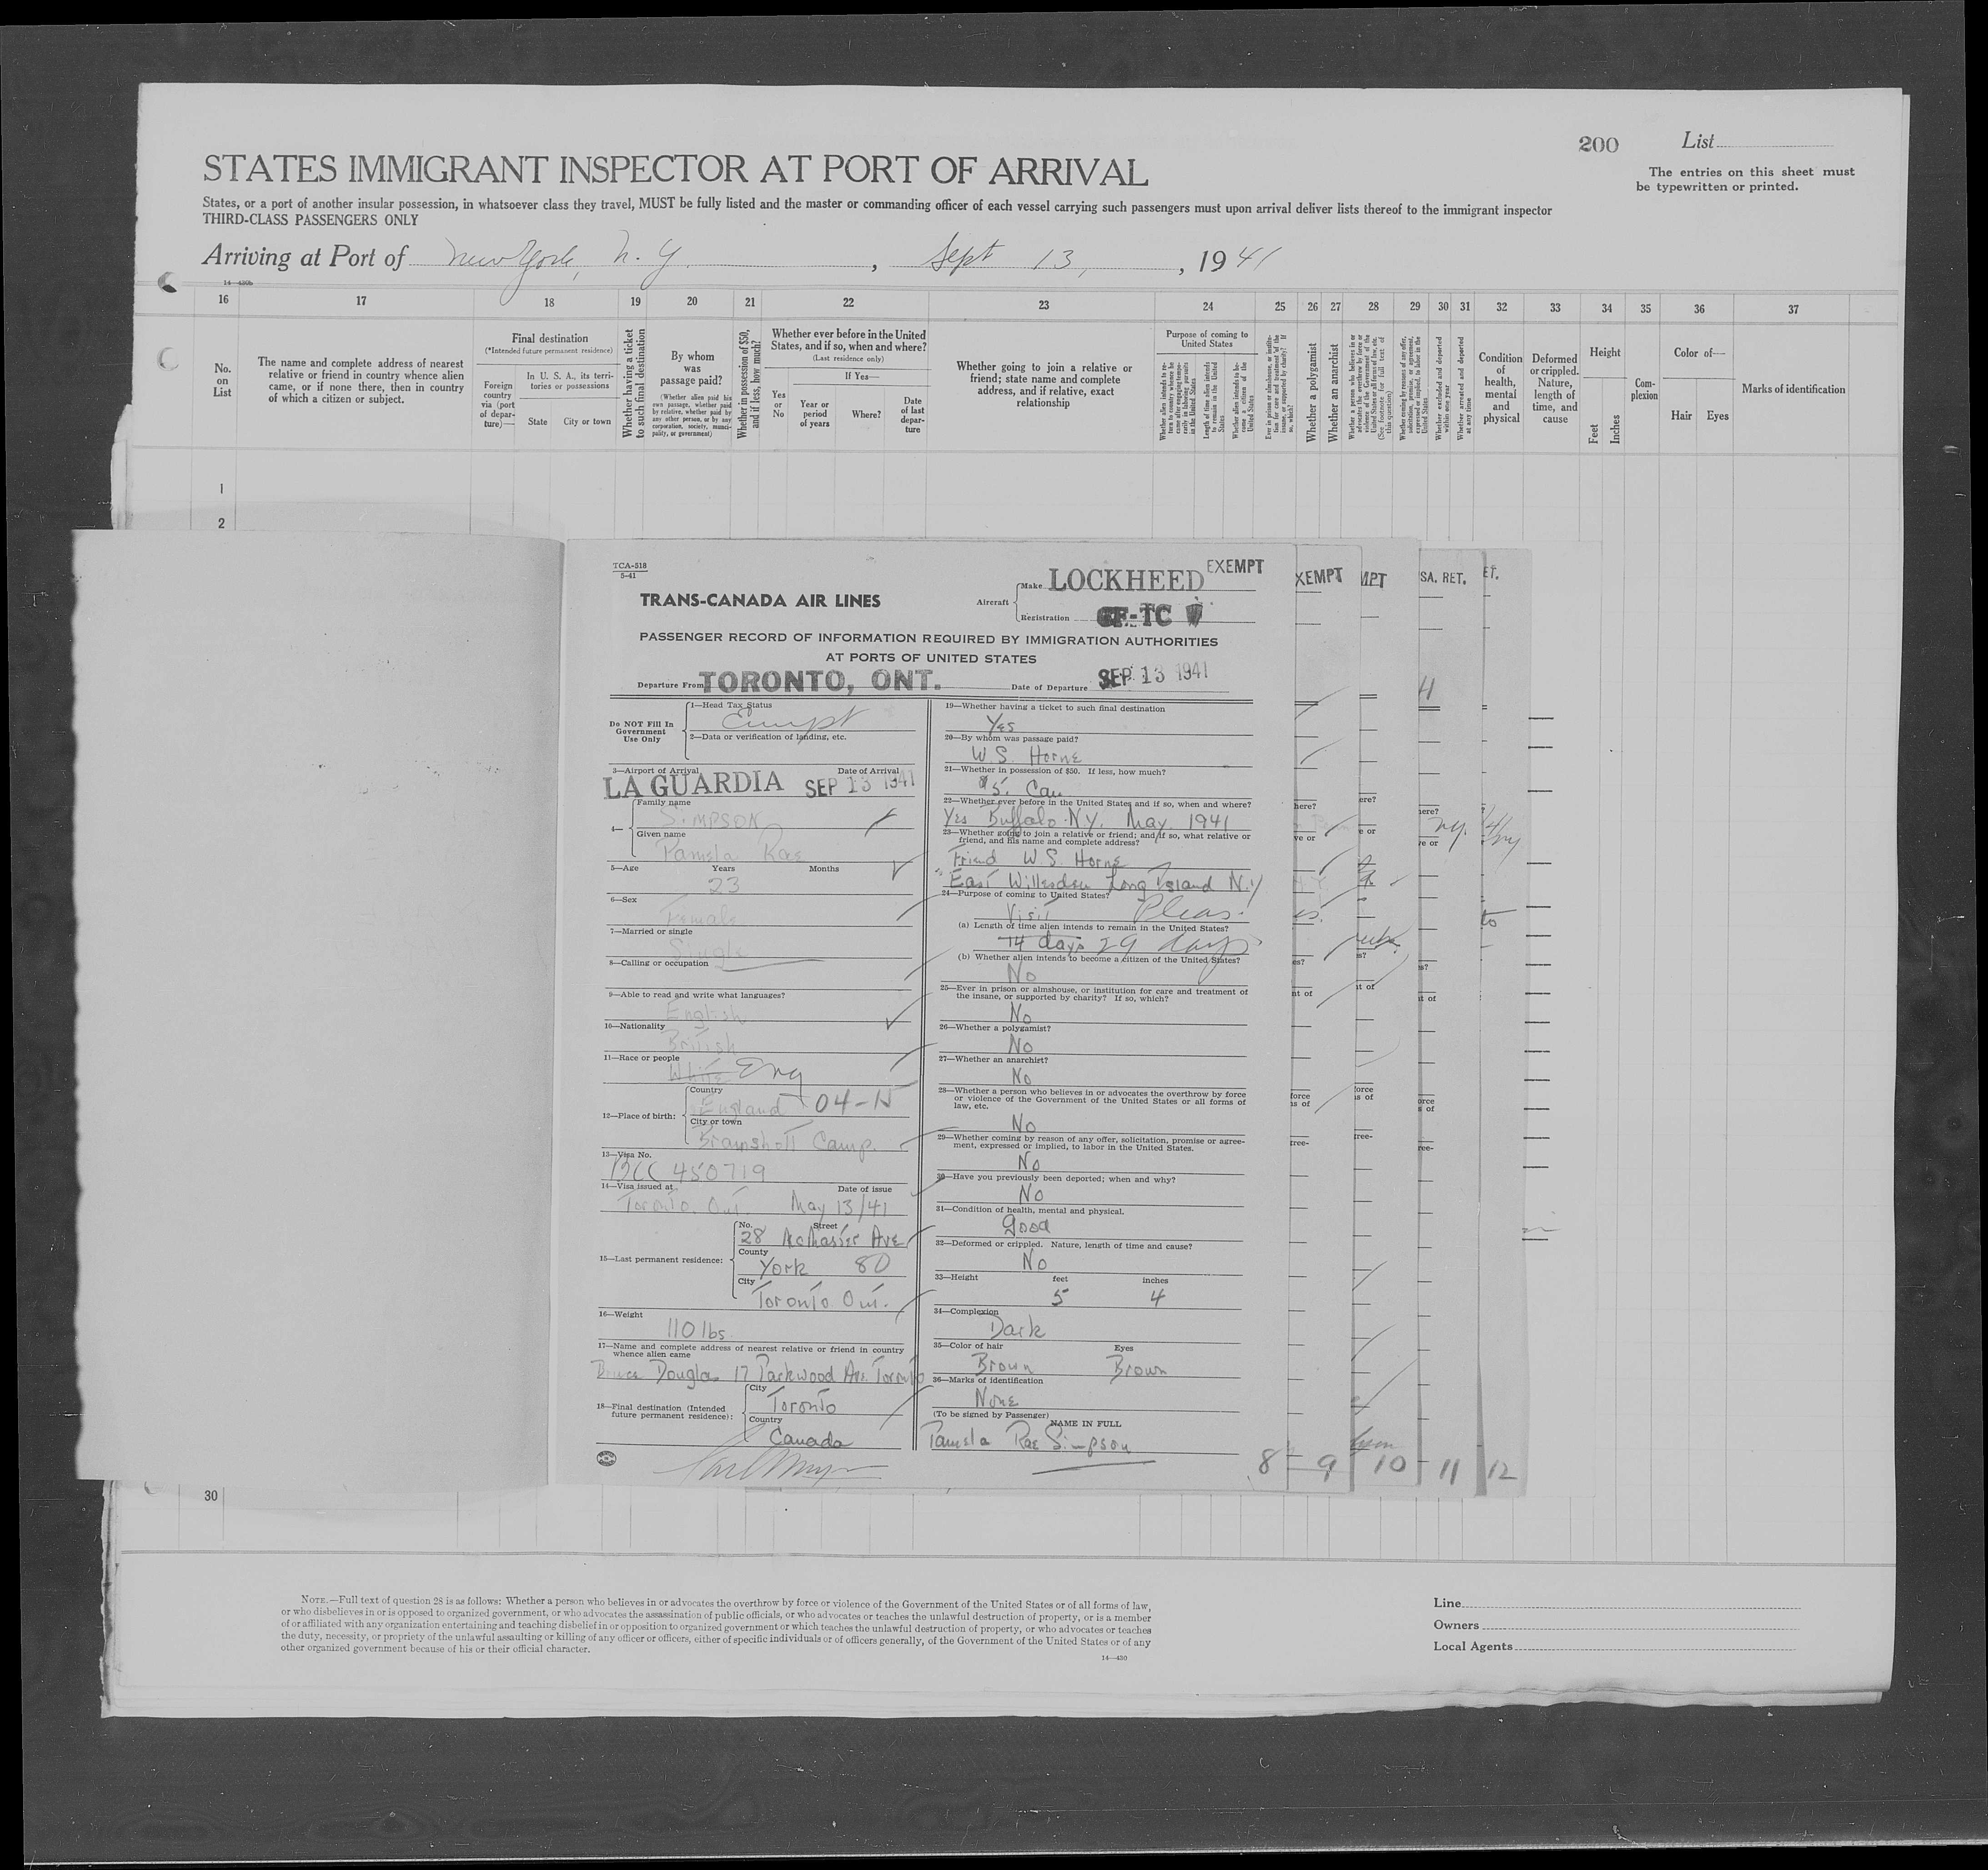 200 List
STATES IMMIGRANT INSPECTOR AT PORT OF ARRIVAL
The entries on this sheet must
be typewritten or printed.
States, or a port of another insular possession, in whatsoever class they travel, MUST be fully listed and the master or commanding officer of each vessel carrying such passengers must upon arrival deliver lists thereof to the immigrant inspector
THIRD-CLASS PASSENGERS ONLY
Arriving at Port of New York, N. Y., Sept 13, 1941
16 17 18 19 20 21 22 23 24 25 26 27 28 29 30 31 32 33 34 35 36 37
No. on List
The name and complete address of nearest
relative or friend in country whence alien
came, or if none there, then in country
of which a citizen or subject.
Final destination
(*Intended future permanent residence)
Foreign country via (port of departure)—
In U. S. A., its territories or possessions
State City or town
Whether having a ticket to such final destination
By whom was passage paid?
(Whether alien paid his own passage, whether paid by relative, whether paid by any other person, or by any corporation, society, municipality, or government)
Whether in possession of $50, and if less, how much?
Whether ever before in the United
States, and if so, when and where?
(Last residence only)
Yes or No
If Yes—
Year or period of years
Where?
Date of last departure
Whether going to join a relative or
friend; state name and complete
address, and if relative, exact
relationship
Purpose of coming to
United States
Whether a polygamist
Whether an anarchist
Condition of health, mental and physical
Deformed or crippled. Nature, length of time, and cause
Height
Feet Inches
Complexion
Color of—
Hair Eyes
Marks of identification
1
2
TCA-518
5-41
TRANS-CANADA AIR LINES
EXEMPT
Aircraft
Make LOCKHEED
Registration CF-TC
PASSENGER RECORD OF INFORMATION REQUIRED BY IMMIGRATION AUTHORITIES
AT PORTS OF UNITED STATES
Departure From TORONTO, ONT. Date of Departure SEP 13 1941
Do NOT Fill In
Government
Use Only
1—Head Tax Status
Exempt
2—Data or verification of landing, etc.
3—Airport of Arrival Date of Arrival
LA GUARDIA SEP 13 1941
4—
Family name
SIMPSON
Given name
Pamela Rae
5—Age Years Months
23
6—Sex
Female
7—Married or single
Single
8—Calling or occupation
9—Able to read and write what languages?
English
10—Nationality
British
11—Race or people
White Eng
12—Place of birth:
Country
England 04-N
City or town
Bramshott Camp.
13—Visa No.
BCC 450719
14—Visa issued at Date of issue
Toronto, Ont. May 13/41
15—Last permanent residence:
No. Street
28 McMaster Ave
County
York 80
City
Toronto Ont.
16—Weight
110 lbs
17—Name and complete address of nearest relative or friend in country
whence alien came
Bruce Douglas 17 Parkwood Ave. Toronto
18—Final destination (Intended
future permanent residence):
City
Toronto
Country
Canada
19—Whether having a ticket to such final destination
Yes
20—By whom was passage paid?
W.S. Horne
21—Whether in possession of $50. If less, how much?
$5. Can
22—Whether ever before in the United States and if so, when and where?
Yes Buffalo N.Y. May 1941
23—Whether going to join a relative or friend; and if so, what relative or
friend, and his name and complete address?
Friend W.S. Horne
East Willesden Long Island N.Y
24—Purpose of coming to United States?
Visit Pleas.
(a) Length of time alien intends to remain in the United States?
14 days 29 days
(b) Whether alien intends to become a citizen of the United States?
No
25—Ever in prison or almshouse, or institution for care and treatment of
the insane, or supported by charity? If so, which?
No
26—Whether a polygamist?
No
27—Whether an anarchist?
No
28—Whether a person who believes in or advocates the overthrow by force
or violence of the Government of the United States or all forms of
law, etc.
No
29—Whether coming by reason of any offer, solicitation, promise or agree-
ment, expressed or implied, to labor in the United States.
No
30—Have you previously been deported; when and why?
No
31—Condition of health, mental and physical.
good
32—Deformed or crippled. Nature, length of time and cause?
No
33—Height feet inches
5 4
34—Complexion
Dark
35—Color of hair Eyes
Brown Brown
36—Marks of identification
None
(To be signed by Passenger) NAME IN FULL
Pamela Rae Simpson
XEMPT MPT SA. RET. ET.
8 9 10 11 12
30
NOTE.—Full text of question 28 is as follows: Whether a person who believes in or advocates the overthrow by force or violence of the Government of the United States or of all forms of law,
or who disbelieves in or is opposed to organized government, or who advocates the assassination of public officials, or who advocates or teaches the unlawful destruction of property, or is a member
of or affiliated with any organization entertaining and teaching disbelief in or opposition to organized government or which teaches the unlawful destruction of property, or who advocates or teaches
the duty, necessity, or propriety of the unlawful assaulting or killing of any officer or officers, either of specific individuals or of officers generally, of the Government of the United States or of any
other organized government because of his or their official character.
14—430
Line
Owners
Local Agents